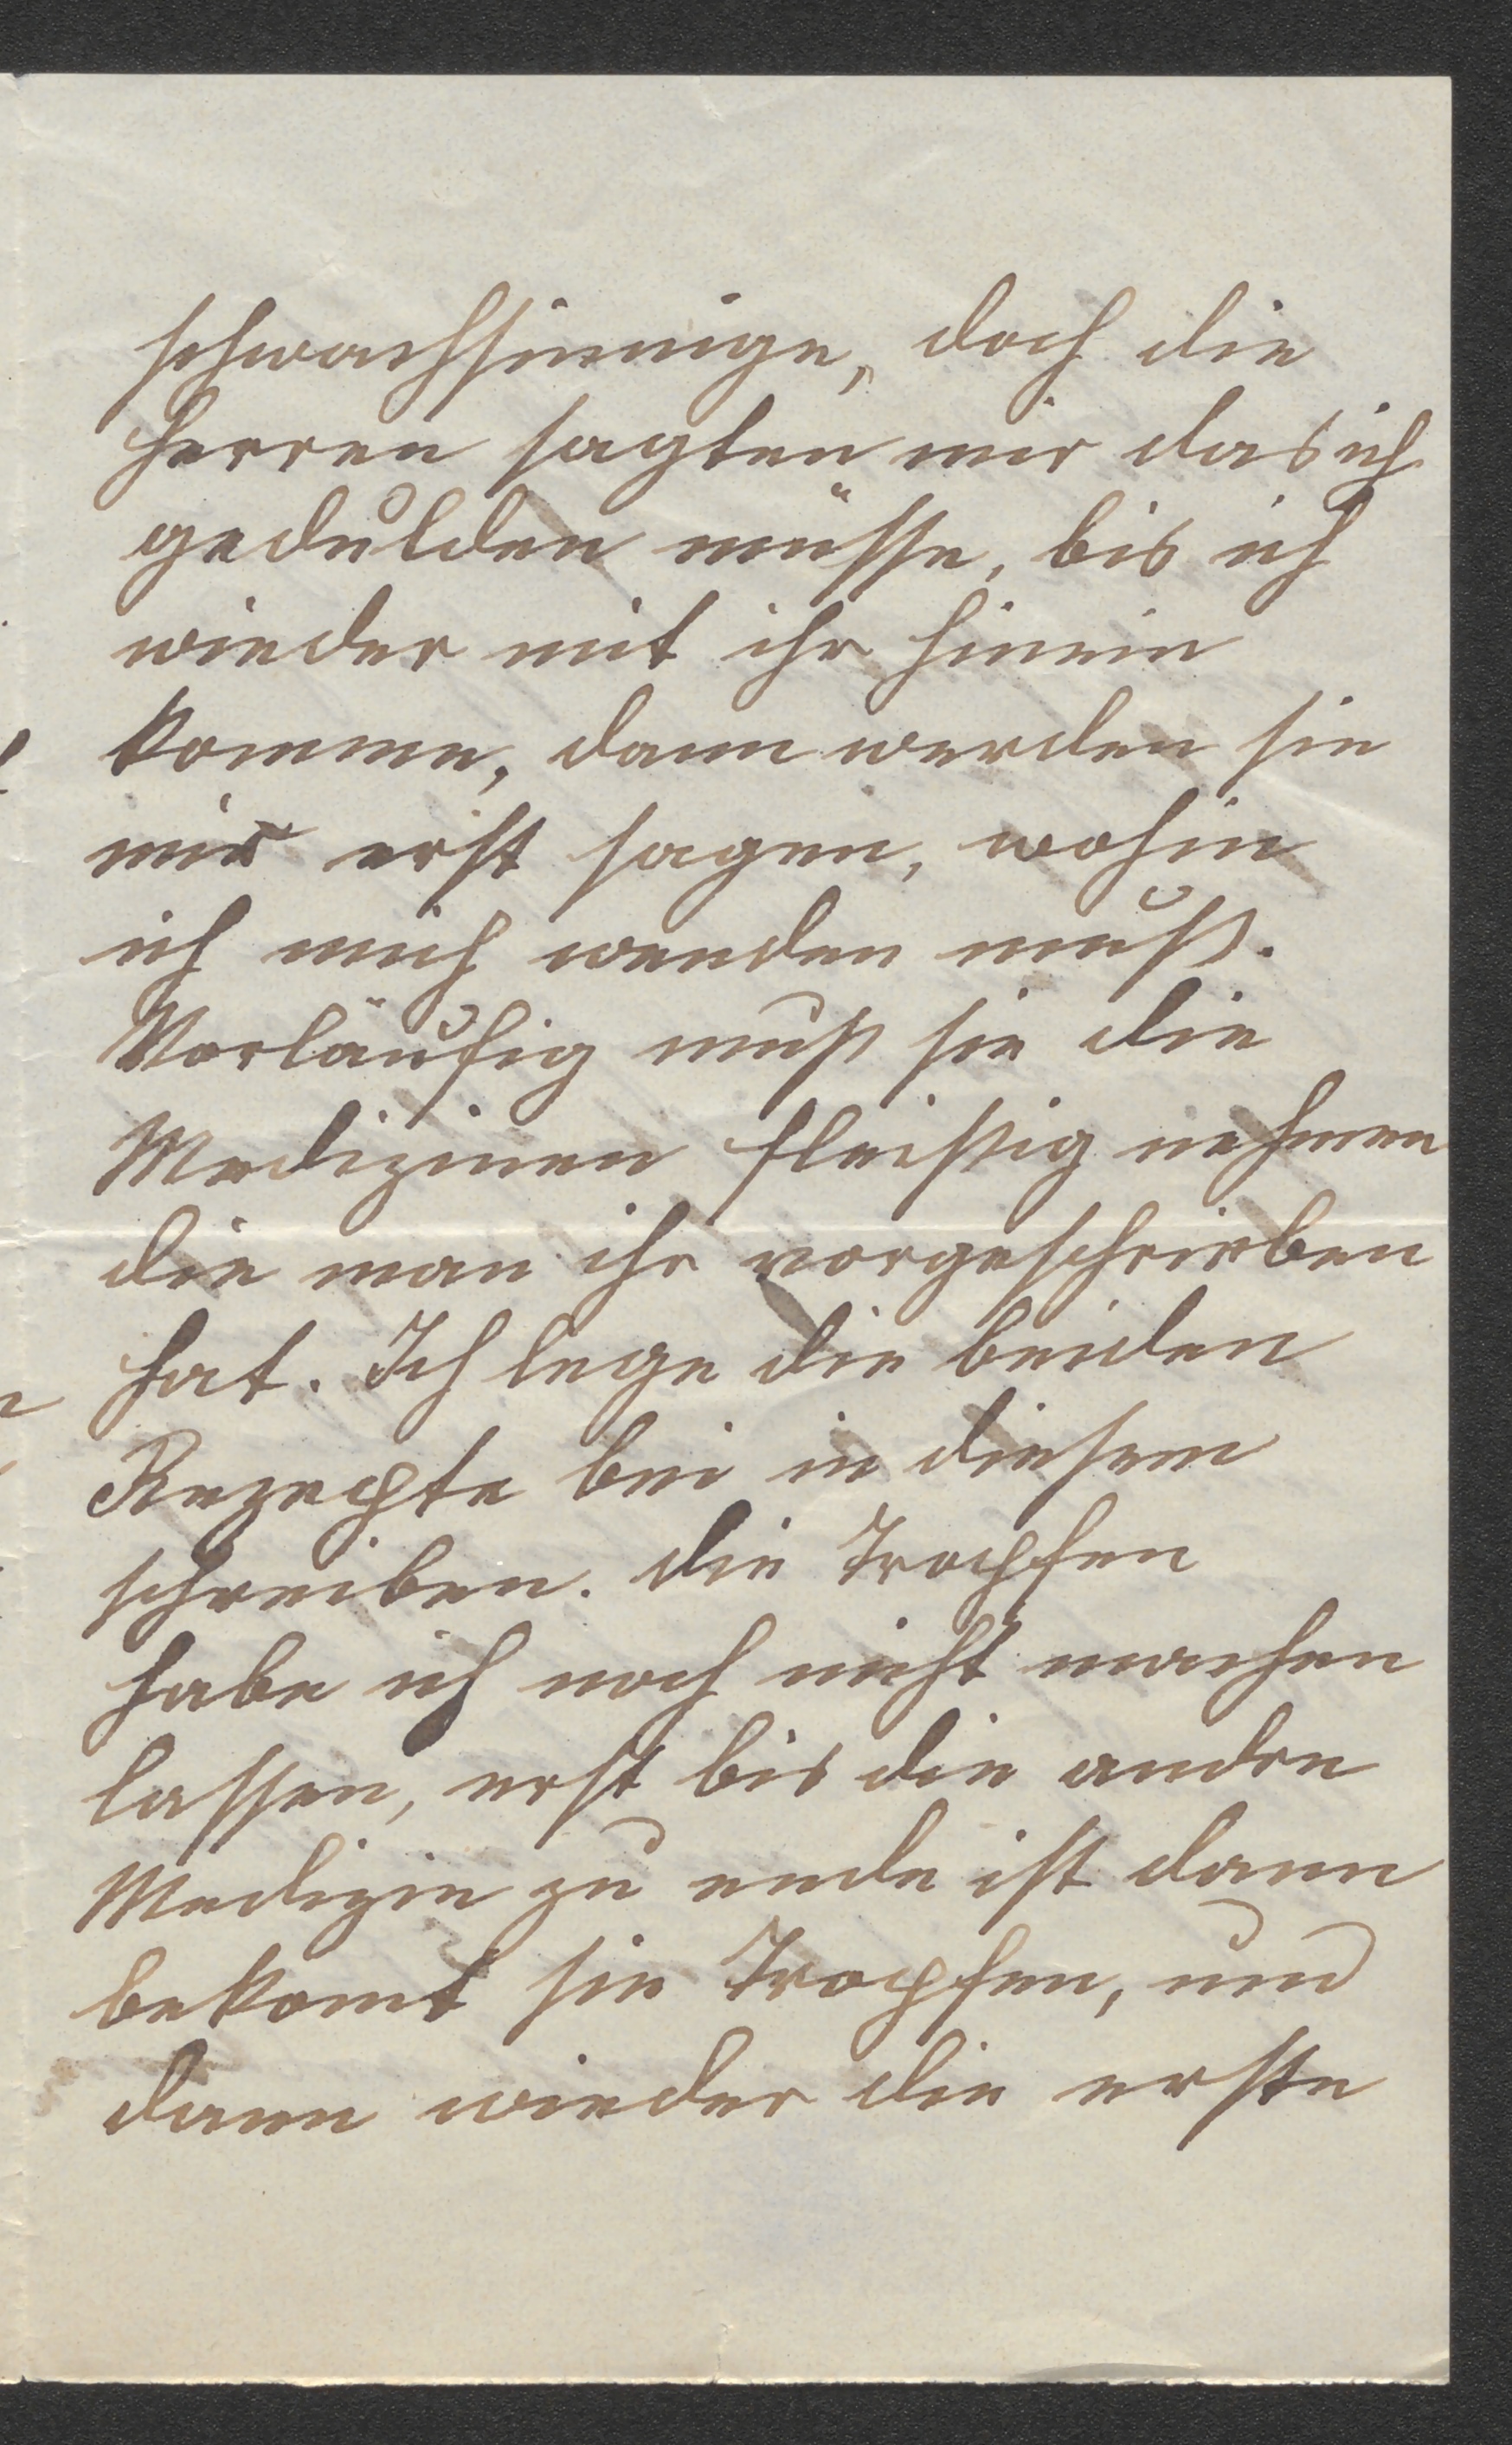 schwachsinnige, doch die
Herren sagten mir das ich
gedulden müsse, bis ich
wieder mit ihr hinein
komme, dann werden sie
mir erst sagen, wohin
ich mich wenden muß.
Vorläufig muß sie die
Medizinen fleißig nehmen
die man ihr vorgeschrieben
hat. Ich lege die beiden
Rezepte bei in diesem
schreiben. die Tropfen
habe ich noch nicht machen
lassen, erst bis die andre
Medizin zu ende ist dann
bekomt sie Tropfen, und
dann wieder die erste